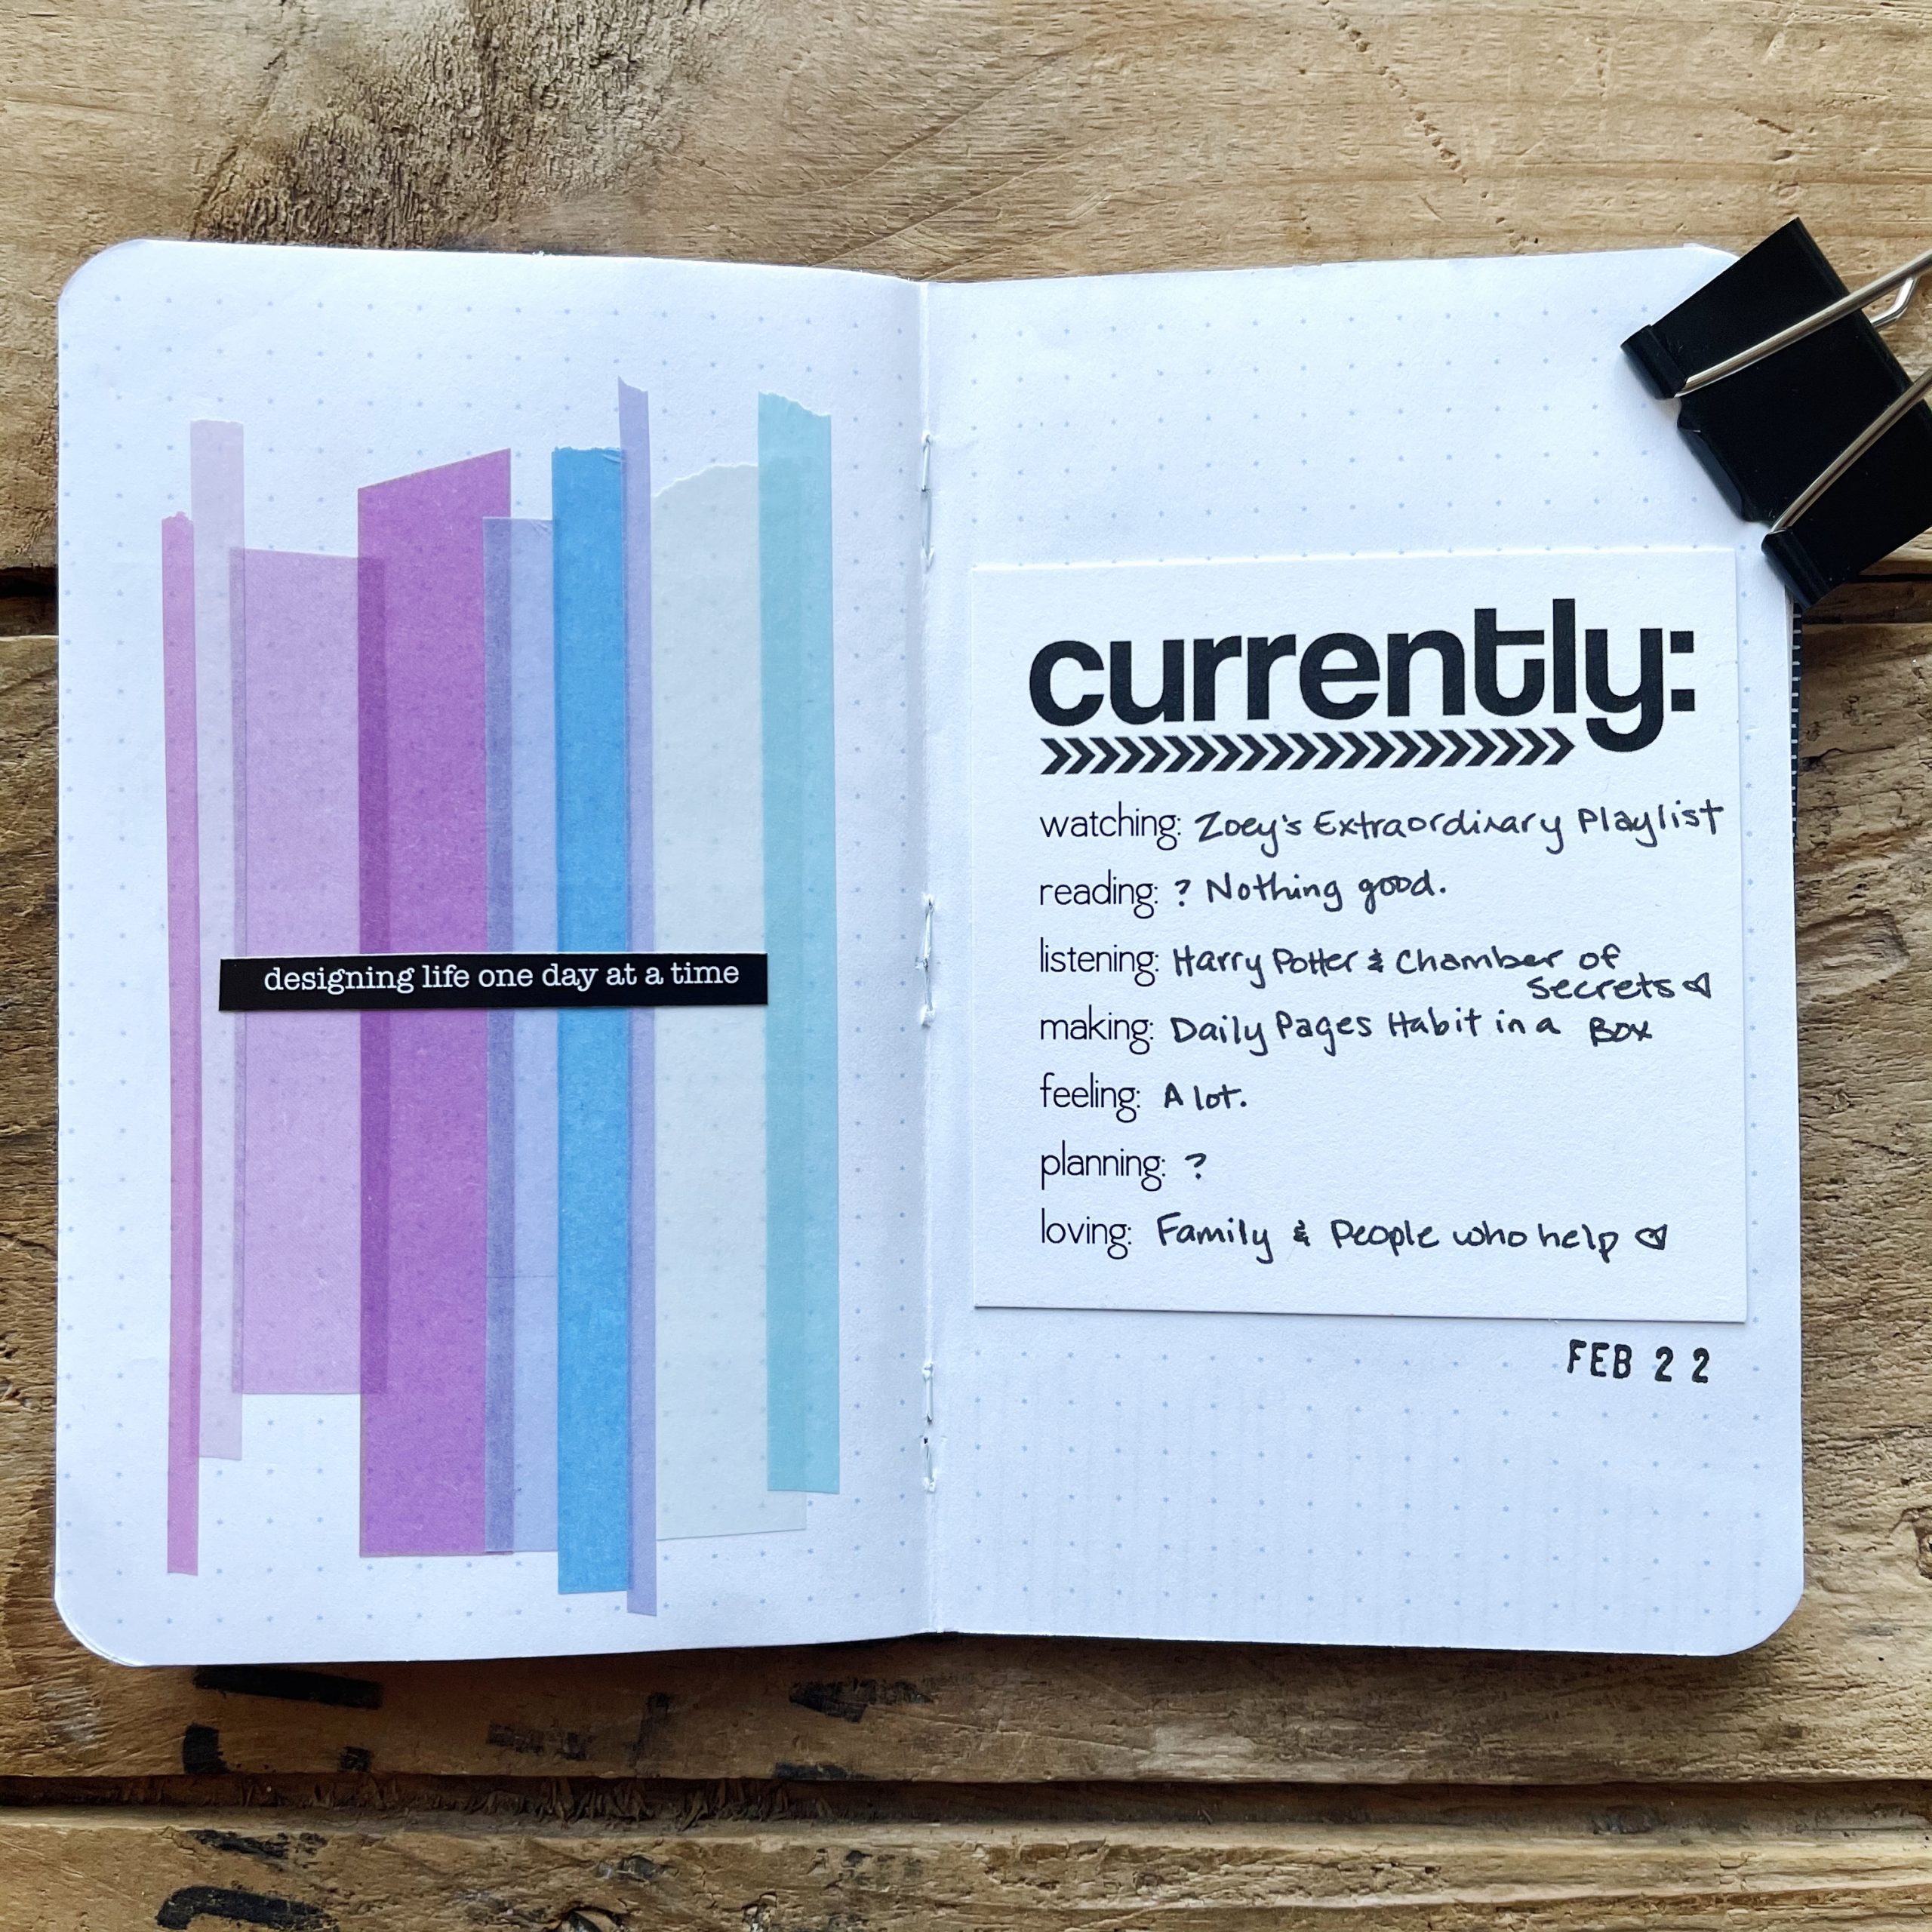 designing life one day at a time
currently:
watching: Zoey's Extraordinary Playlist
reading: ? Nothing good.
listening: Harry Potter & Chamber of
Secrets
making: Daily Pages Habit in a Box
feeling: A lot.
planning: ?
loving: Family & People who help
FEB 22